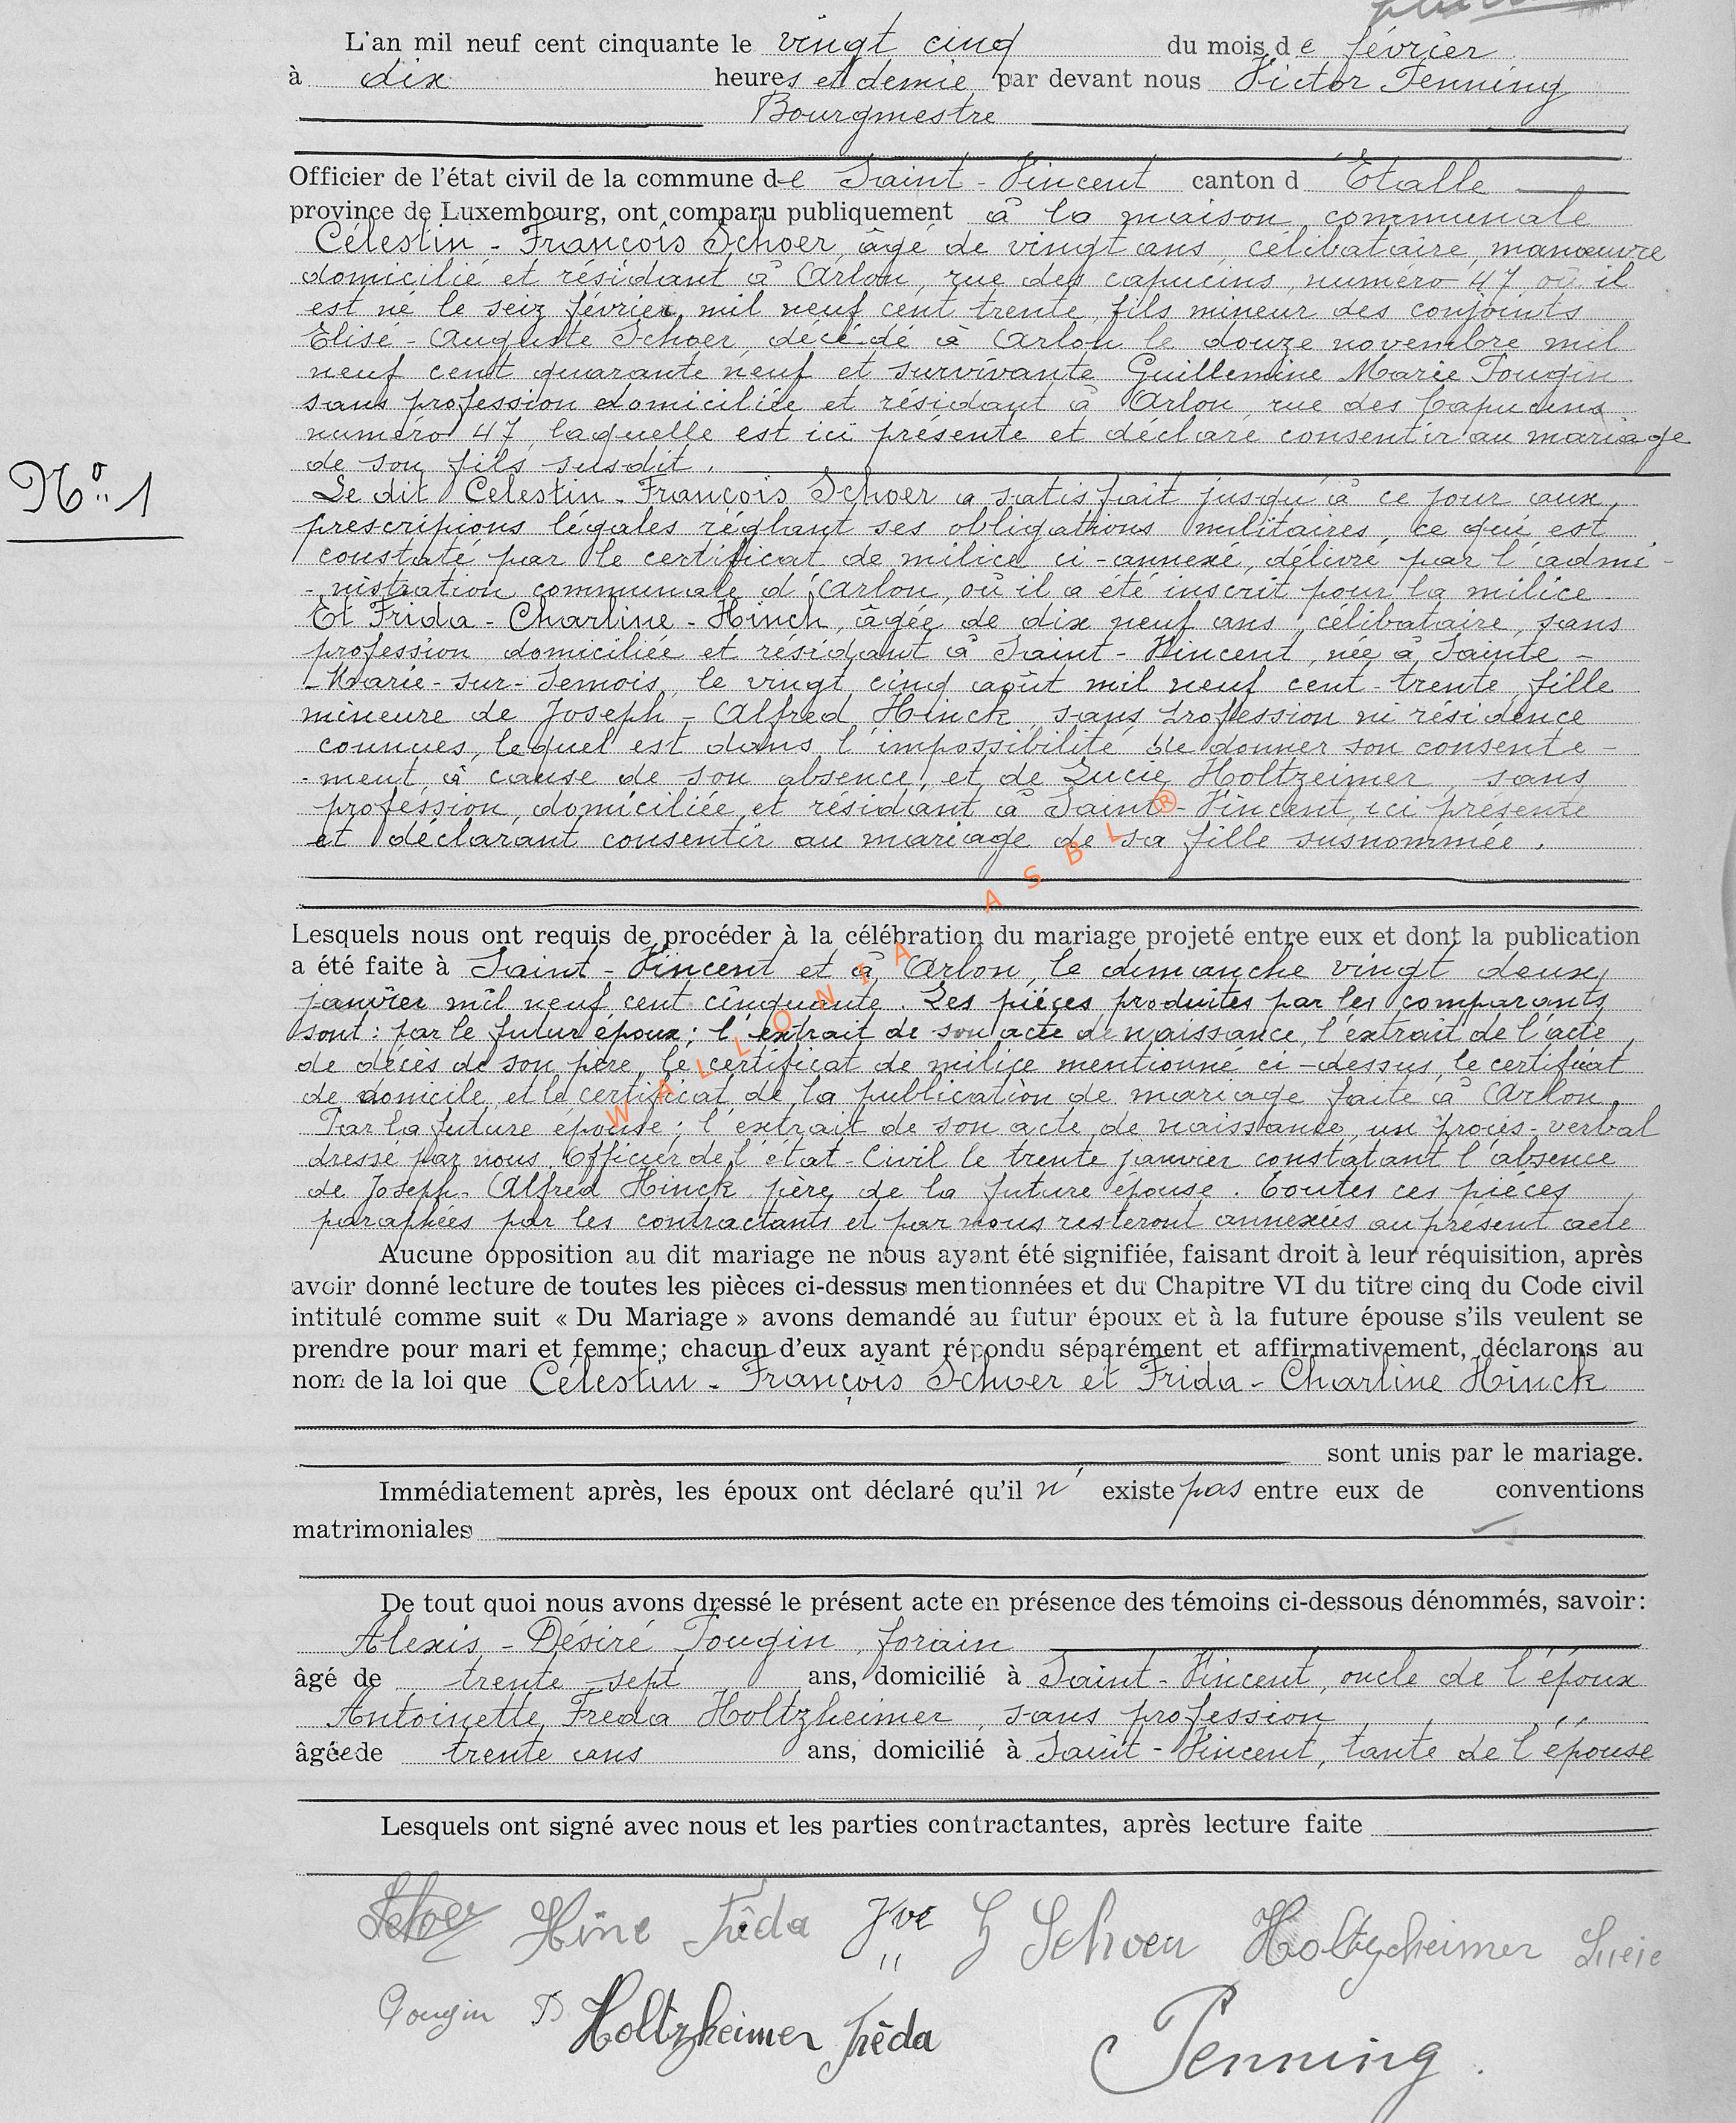 L'an mil neuf cent cinquante le vingt cinq du mois de février
à dix heures et demie par devant nous Victor Penning
Bourgmestre
Officier de l'état civil de la commune de Saint-Vincent canton d'Etalle
province de Luxembourg, ont comparu publiquement à la maison communale
Célestin-François Schoer, âgé de vingt ans, célibataire, manœuvre
domicilié et résidant à Arlon, rue des capucins, numéro 47 où il
est né le seiz février mil neuf cent trente, fils mineur des conjoints
Elisé-Auguste Schoer, décédé à Arlon le douze novembre mil
neuf cent quarante neuf et survivante Guillemine Marie Tougin
sans profession domiciliée et résidant à Arlon, rue des Capucins
numéro 47, laquelle est ici présente et déclare consentir au mariage
de son fils susdit.
N° 1
Le dit Célestin-François Schoer a satisfait jusqu'à ce jour aux
prescripions légales réglant ses obligations militaires, ce qui est
constaté par le certificat de milice ci-annexé, délivré par l'admi-
-nistration communale d'Arlon, où il a été inscrit pour la milice.
Et Frida-Charline-Hinck, âgée de dix neuf ans, célibataire, sans
profession, domiciliée et résidant à Saint-Vincent, née à Sainte-
-Marie-sur-Semois, le vingt cinq août mil neuf cent-trente, fille
mineure de Joseph-Alfred Hinck, sans profession ni résidence
connues, lequel est dans l'impossibilité de donner son consente-
-ment à cause de son absence, et de Lucie Holtzeimer, sans
profession, domiciliée et résidant à Saint-Vincent, ici présente
et déclarant consentir au mariage de sa fille susnommée.
WALLONIA ASBL ®
Lesquels nous ont requis de procéder à la célébration du mariage projeté entre eux et dont la publication
a été faite à Saint-Vincent et à Arlon, le dimanche vingt deux
janvier mil neuf cent cinquante. Les pièces produites par les comparants
sont: par le futur époux; l'extrait de son acte de naissance, l'extrait de l'acte
de décès de son père, le certificat de milice mentionné ci-dessus, le certificat
de domicile, et le certificat de la publication de mariage faite à Arlon.
Par la future épouse; l'extrait de son acte de naissance, un procès-verbal
dressé par nous Officier de l'état-Civil le trente janvier constatant l'absence
de Joseph-Alfred Hinck père de la future épouse. Toutes ces pièces
paraphées par les contractants et par nous resteront annexées au présent acte
Aucune opposition au dit mariage ne nous ayant été signifiée, faisant droit à leur réquisition, après
avoir donné lecture de toutes les pièces ci-dessus mentionnées et du Chapitre VI du titre cinq du Code civil
intitulé comme suit « Du Mariage » avons demandé au futur époux et à la future épouse s'ils veulent se
prendre pour mari et femme; chacun d'eux ayant répondu séparément et affirmativement, déclarons au
nom de la loi que Célestin-François Schoer et Frida-Charline Hinck
sont unis par le mariage.
Immédiatement après, les époux ont déclaré qu'il n'existe pas entre eux de conventions
matrimoniales
De tout quoi nous avons dressé le présent acte en présence des témoins ci-dessous dénommés, savoir:
Alexis-Désiré Tougin, forain
âgé de trente-sept ans, domicilié à Saint-Vincent, oncle de l'époux
Antoinette Freda Holtzheimer, sans profession
âgée de trente ans ans, domicilié à Saint-Vincent, tante de l'épouse
Lesquels ont signé avec nous et les parties contractantes, après lecture faite
Schoer Hinc Frêda Vve Schoer Holtzheimer Lucie
Tougin D Holtzheimer Frêda Penning.